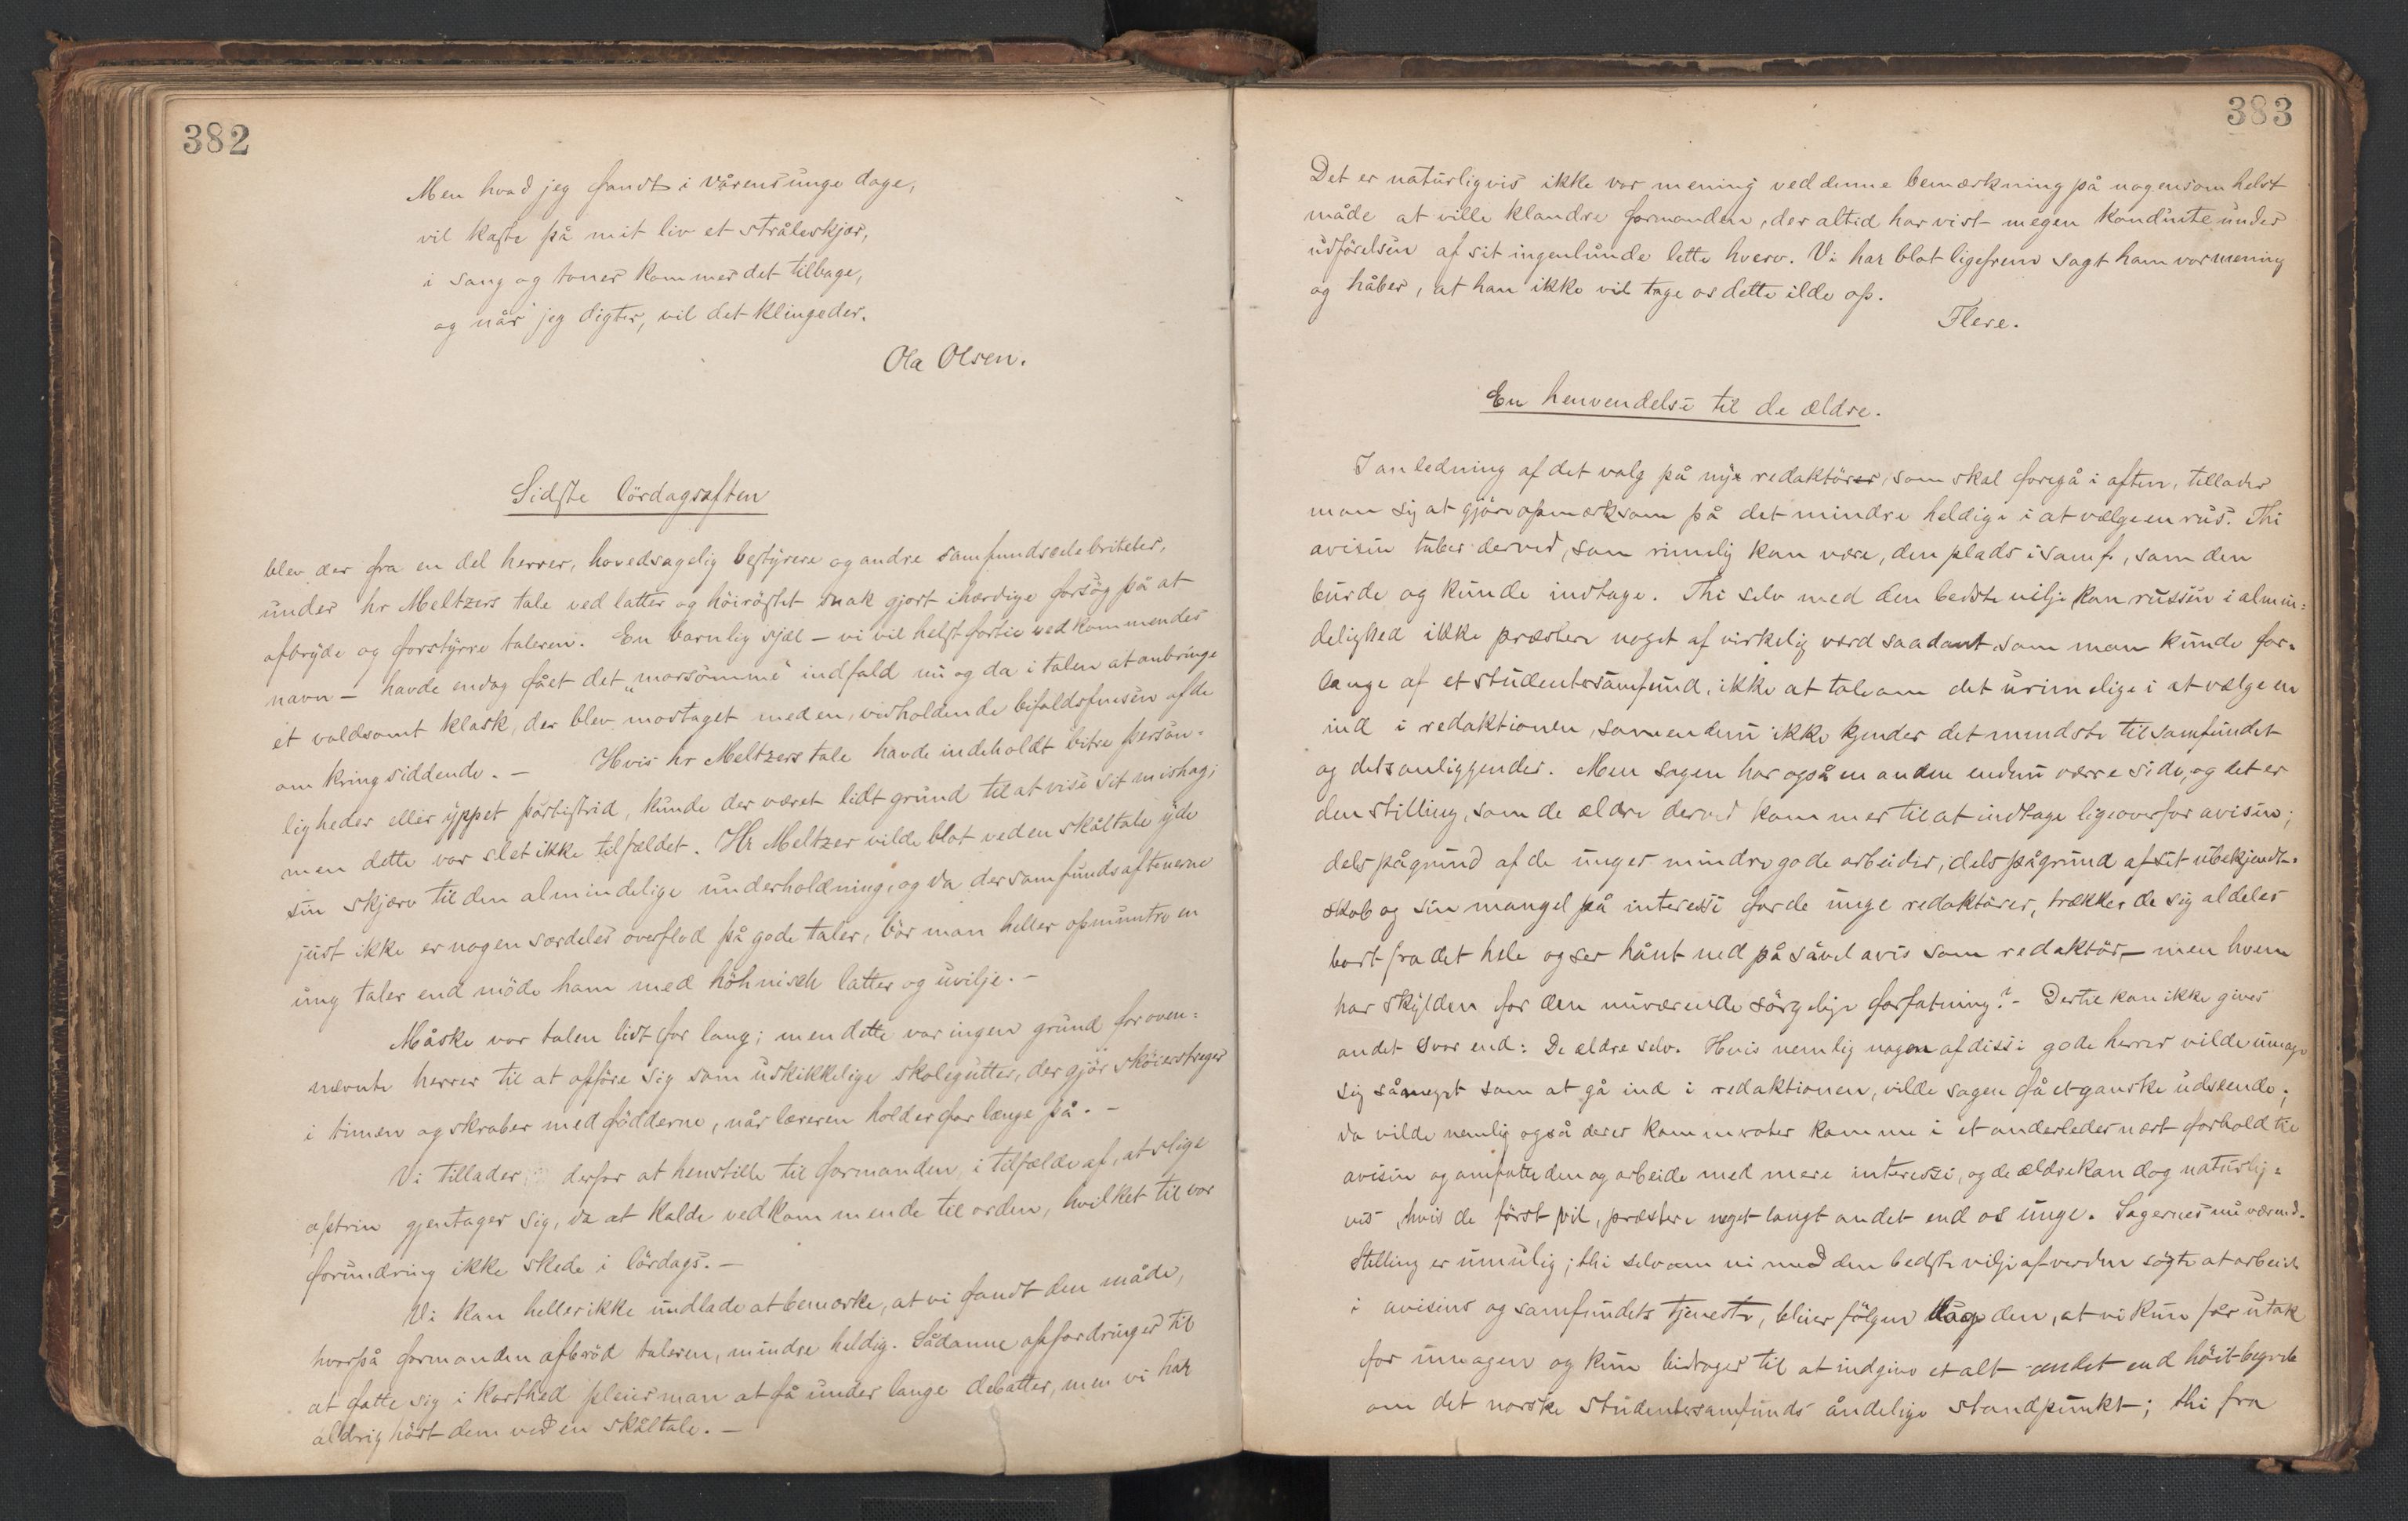 382
Men hvad jeg fandt i vårens unge dage,
vil kaste på mit liv et stråleskjær,
i sang og toner kommer det tilbage,
og når jeg digter, vil det klinge der.
Ola Olsen.
Sidste lördagsaften
blev der fra en del herrer, hovedsagelig bestyrere og andre samfundscelebriteter,
under hr Meltzers tale ved latter og höiröstet snak gjort ihærdige forsög på at
afbryde og forstyrre taleren. En barnlig sjæl – vi vil helst fortie vedkommendes
navn – havde endog fået det „morsomme" indfald nu og da i talen at anbringe
et voldsomt klask, der blev modtaget med en vedholdende bifaldsfnisen af de
omkringsiddende. – Hvis hr Meltzers tale havde indeholdt bitre person-
ligheder eller yppet partistrid, kunde der været lidt grund til at vise sit mishag;
men dette var slet ikke tilfældet. Hr Meltzer vilde blot ved en skåltale yde
sin skjærv til den almindelige underholdning, og da der samfundsaftenerne
just ikke er nogen særdeles overflod på gode taler, bör man heller opmuntre en
ung taler end möde ham med höhnisch latter og uvilje. –
Måske var talen lidt for lang; men dette var ingen grund for oven=
nævnte herrer til at opföre sig som uskikkelige skolegutter, der gjör skøierstreger
i timen og skraber med födderne, når læreren holder for længe på. –
Vi tillader derfor at henstille til formanden, i tilfælde af, at slige
optrin gjentager sig, da at kalde vedkommende til orden, hvilket til vor
forundring ikke skede i lördags. –
Vi kan heller ikke undlade at bemærke, at vi fandt den måde,
hvorpå formanden afbröd taleren, mindre heldig. Sådanne opfordringer til
at fatte sig i korthed pleier man at få under lange debatter, men vi har
aldrig hört dem ved en skåltale. –
383
Det er naturligvis ikke vor mening ved denne bemærkning på nogensomhelst
måde at ville klandre formanden, der altid har vist megen konduite under
udförelsen af sit ingenlunde lette hverv. Vi har blot ligefrem sagt ham vor mening
og håber, at han ikke vil tage os dette ilde op.
Flere.
En henvendelse til de ældre.
I anledning af det valg på ny redaktör, som skal foregå i aften, tillader
man sig at gjöre opmærksom på det mindre heldige i at vælge en rus. Thi
avisen taber derved, som rimelig kan være, den plads i samf., som den
burde og kunde indtage. Thi selv med den bedste vilje kan russen i almin=
delighed ikke præstere noget af virkelig værd saadant som man kunde for=
lange af et studentersamfund, ikke at tale om det urimelige i at vælge en
ind i redaktionen, som endnu ikke kjender det mindste til samfundet
og dets anliggender. Men sagen har også en anden endnu værre side, og det er
den stilling, som de ældre derved kommer til at indtage ligeoverfor avisen;
dels pågrund af de unges mindre gode arbeider, dels pågrund af sit ubekjendt=
skab og sin mangel på interesse for de unge redaktörer, trækker de sig aldeles
bort fra det hele og ser hånt ned på såvel avis som redaktör, – men hvem
har skylden for den nuværende sörgelige forfatning? – Dertil kan ikke gives
andet svar end: De ældre selv. Hvis nemlig nogen af disse gode herrer vilde umage
sig såmeget som at gå ind i redaktionen, vilde sagen få et ganske udseende;
da vilde nemlig også deres kammerater komme i et anderledes nært forhold til
avisen og omfatte den og arbeide med mere interesse, og de ældre kan dog naturlig=
vis, hvis de först vil, præstere noget langt andet end os unge. Sagernes nuværend.
stilling er umulig; thi selv om vi med den bedste vilje af verden sögte at arbeide
i avisens og samfundets tjeneste, bliver fölgen dog den, at vi kun får utak
for umagen og kun bidrager til at indgive et alt andet end höit begreb
om det norske studentersamfunds åndelige standpunkt; thi fra